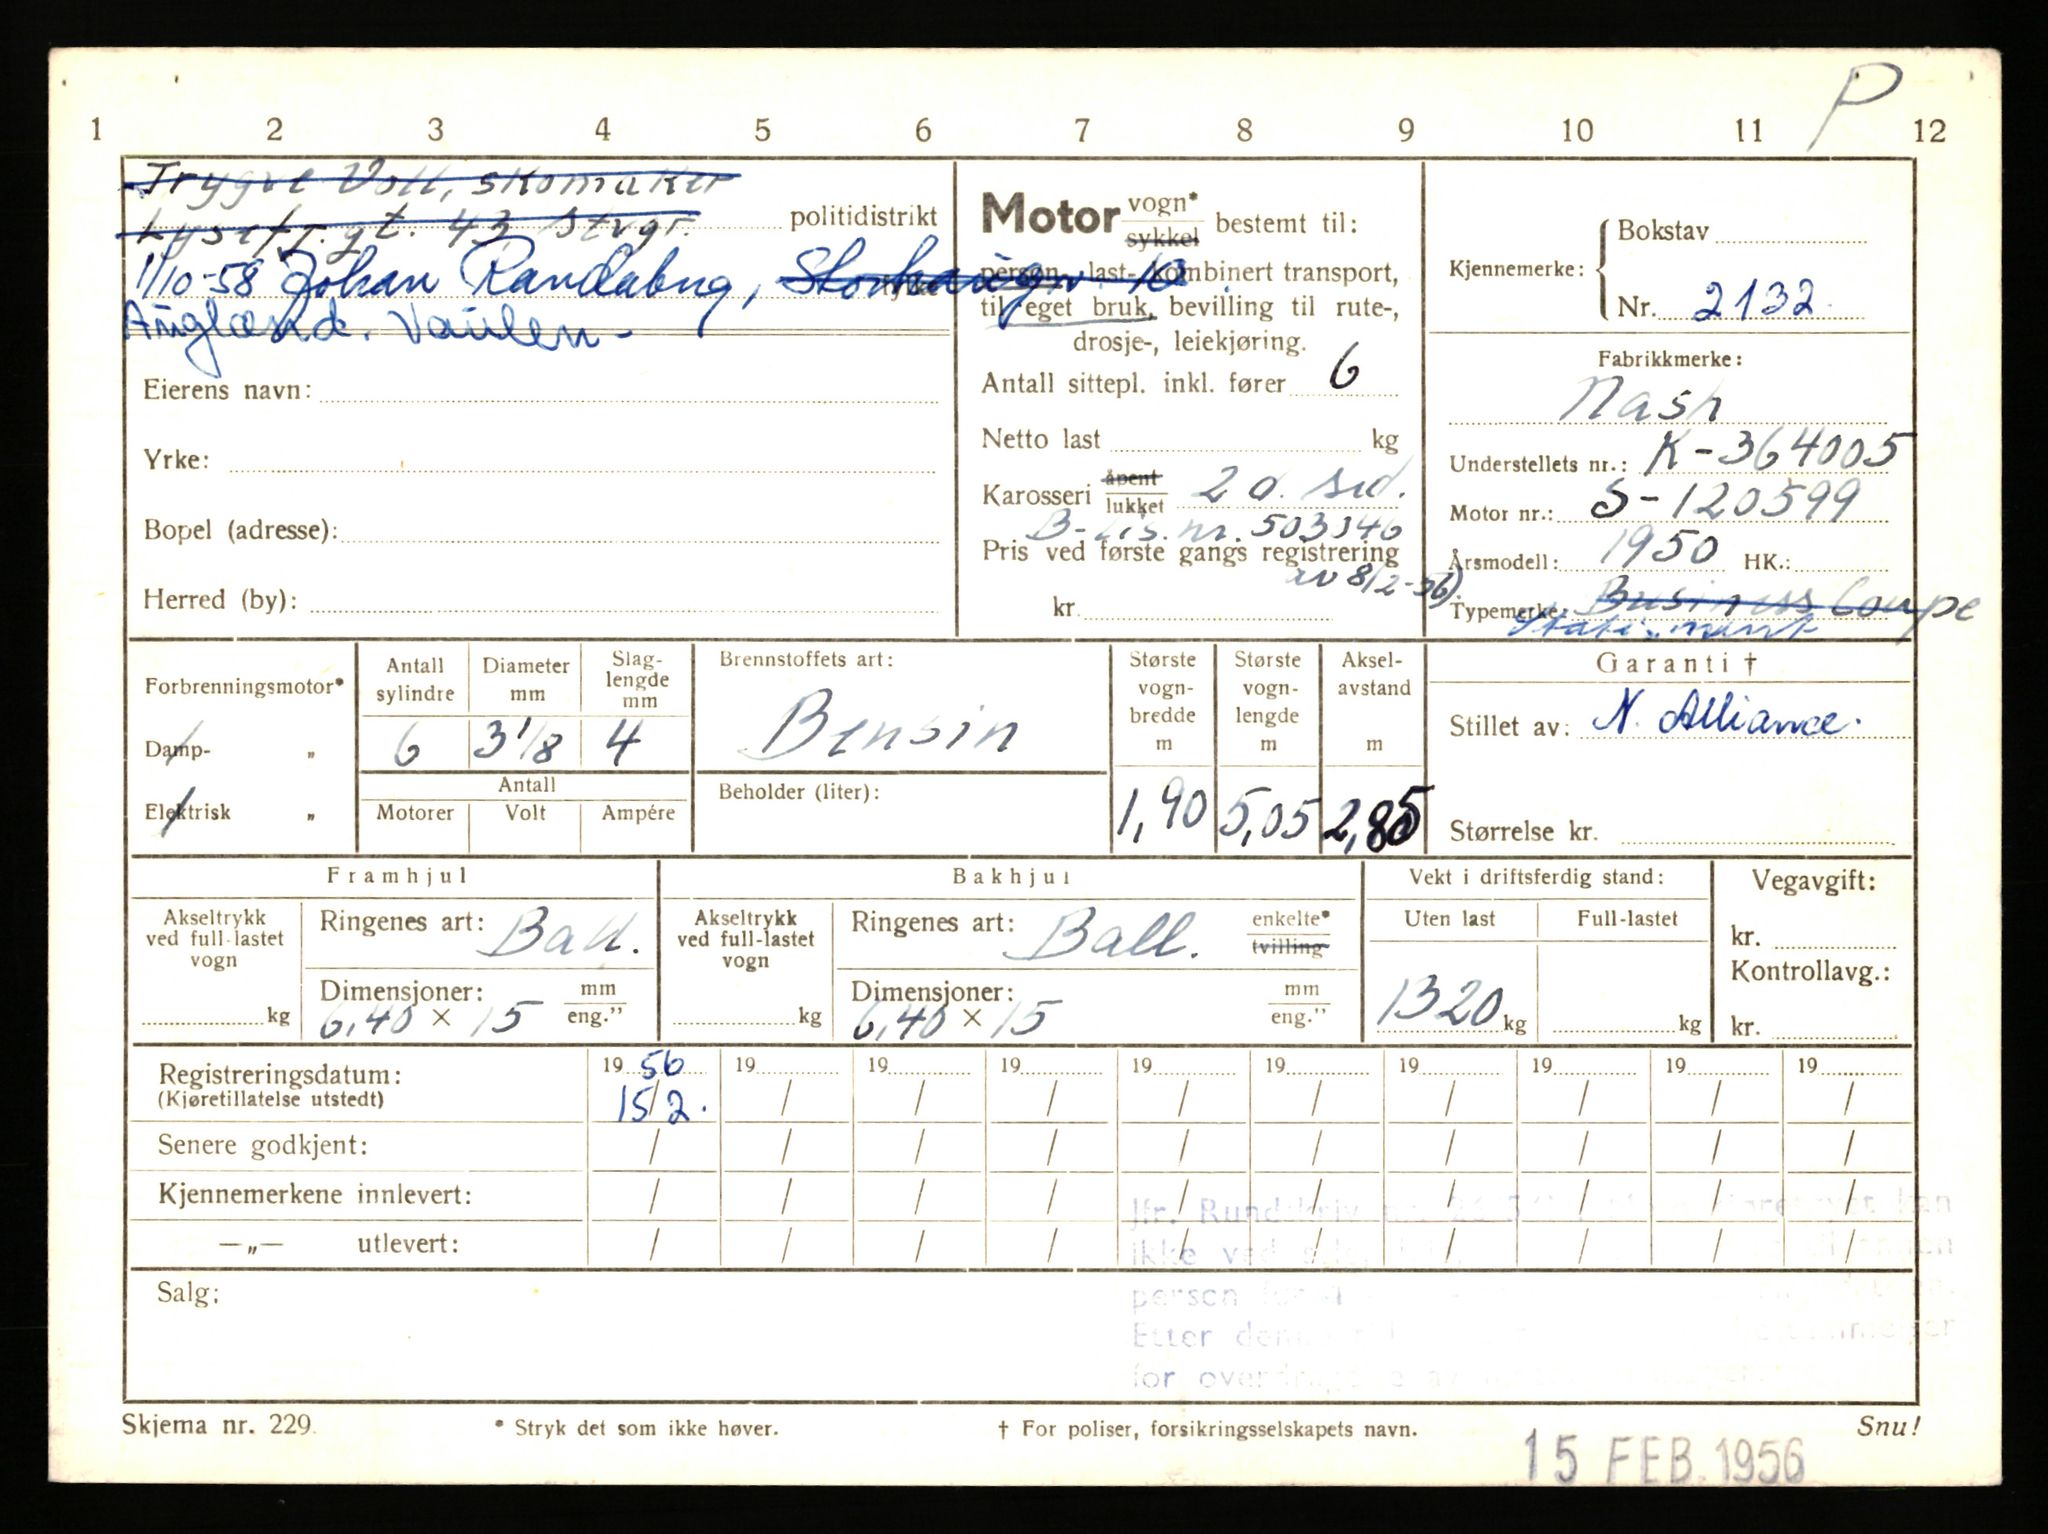 P
1 2 3 4 5 6 7 8 9 10 11 12
Trygve Voll, skomaker
Lysefj.gt. 43 Stvgr. politidistrikt
1/10-58 Johan Randaberg, Storhaugv. 10
Auglænd. Vaulen
Eierens navn:
Yrke:
Bopel (adresse):
Herred (by):
Motor vogn* sykkel bestemt til:
person-, last-, kombinert transport,
til eget bruk, bevilling til rute-,
drosje-, leiekjøring.
Antall sittepl. inkl. fører 6
Netto last kg
Karosseri åpent lukket 2 d. sed.
B-lis. nr. 503346
Pris ved første gangs registrering
av 8/2-56).
kr.
Kjennemerke: Bokstav
Nr. 2132
Fabrikkmerke:
Nash
Understellets nr.: K-364005
Motor nr.: S-120599
Årsmodell: 1950 HK.:
Typemerke: Business Coupe
Statesmant
Forbrenningsmotor*
Damp- „
Elektrisk „
Antall sylindre 6
Diameter mm 3 1/8
Slaglengde mm 4
Antall
Motorer Volt Ampére
Brennstoffets art:
Bensin
Beholder (liter):
Største vognbredde m 1,90
Største vognlengde m 5,05
Akselavstand m 2,85
Garanti †
Stillet av: N. Alliance.
Størrelse kr.
Framhjul
Akseltrykk ved full-lastet vogn kg
Ringenes art: Ball.
Dimensjoner: mm eng."
6,40 × 15
Bakhjul
Akseltrykk ved full-lastet vogn kg
Ringenes art: Ball. enkelte* tvilling
Dimensjoner: mm eng."
6,40 × 15
Vekt i driftsferdig stand:
Uten last Full-lastet
1320 kg kg
Vegavgift:
kr.
Kontrollavg.:
kr.
Registreringsdatum: 19 56 19 19 19 19 19 19 19 19 19
(Kjøretillatelse utstedt) 15/2. / / / / / / / / /
Senere godkjent: / / / / / / / / / /
Kjennemerkene innlevert: / / / / / / / / / /
—„— utlevert: / / / / / / / / / /
Jfr. Rundskriv kan
ikke ved annen
person
Etter denne
for overdragelse av
Salg:
Skjema nr. 229. * Stryk det som ikke høver. † For poliser, forsikringsselskapets navn. Snu!
15 FEB. 1956